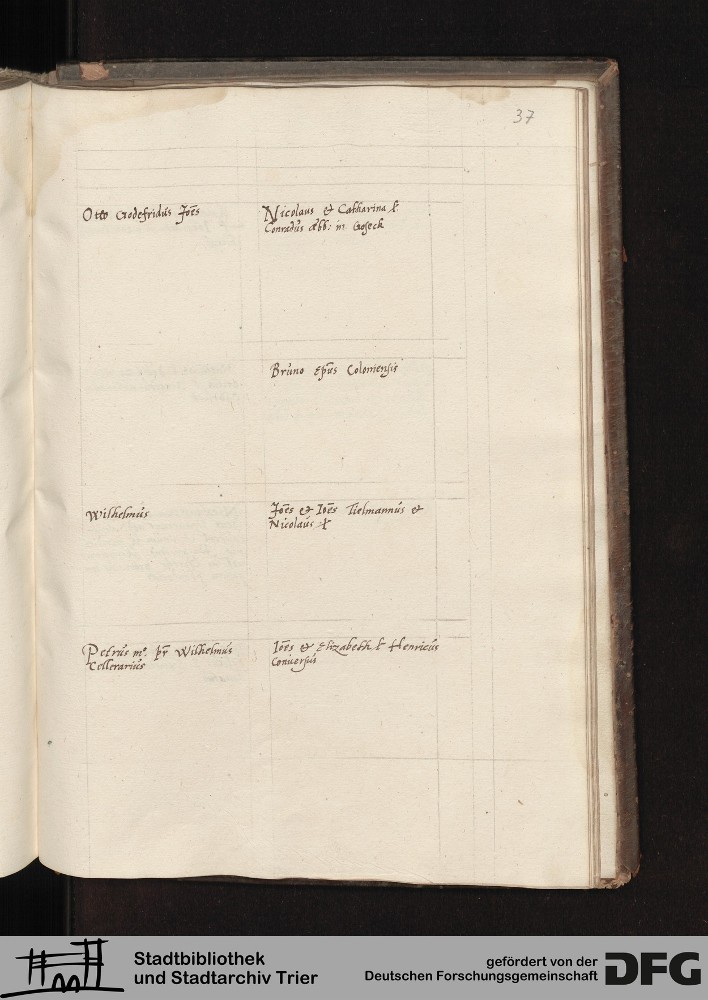 37
Otto Godefridus Joẽs
Nicolaus et Catharina ł
Conradus abb: in Goseck
Bruno Ep̃us Coloniensis
Wilhelmus
Joẽs et Joẽs Tielmannus et
Nicolaus ł
Petrus mo. pr̃ Wilhelmus
Cellerarius
Joẽs et Elizabeth ł Henricus
Conuersus
Stadtbibliothek
und Stadtarchiv Trier
gefördert von der
Deutschen Forschungsgemeinschaft
DFG